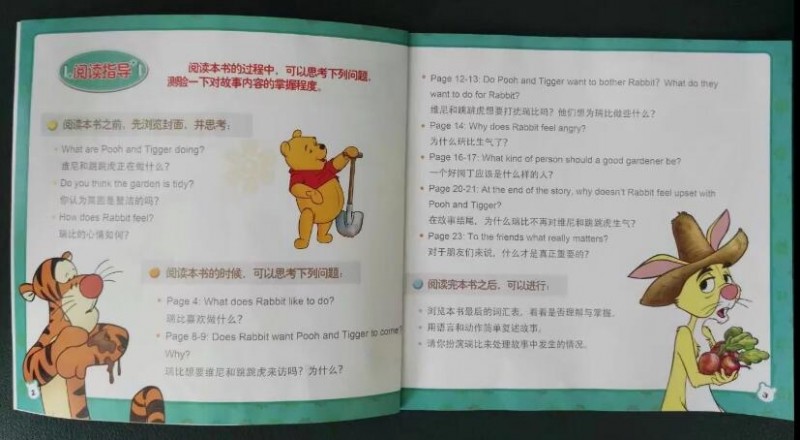 阅读指导
阅读本书的过程中，可以思考下列问题，
测验一下对故事内容的掌握程度。
阅读本书之前，先浏览封面，并思考：
What are Pooh and Tigger doing?
维尼和跳跳虎正在做什么？
Do you think the garden is tidy?
你认为菜园是整洁的吗？
How does Rabbit feel?
瑞比的心情如何？
阅读本书的时候，可以思考下列问题：
Page 4: What does Rabbit like to do?
瑞比喜欢做什么？
Page 8-9: Does Rabbit want Pooh and Tigger to come?
Why?
瑞比想要维尼和跳跳虎来访吗？为什么？
2
Page 12-13: Do Pooh and Tigger want to bother Rabbit? What do they
want to do for Rabbit?
维尼和跳跳虎想要打扰瑞比吗？他们想为瑞比做些什么？
Page 14: Why does Rabbit feel angry?
为什么瑞比生气了？
Page 16-17: What kind of person should a good gardener be?
一个好园丁应该是什么样的人？
Page 20-21: At the end of the story, why doesn't Rabbit feel upset with
Pooh and Tigger?
在故事结尾，为什么瑞比不再对维尼和跳跳虎生气？
Page 23: To the friends what really matters?
对于朋友们来说，什么才是真正重要的？
阅读完本书之后，可以进行：
浏览本书最后的词汇表，看看是否理解与掌握。
用语言和动作简单复述故事。
请你扮演瑞比来处理故事中发生的情况。
3